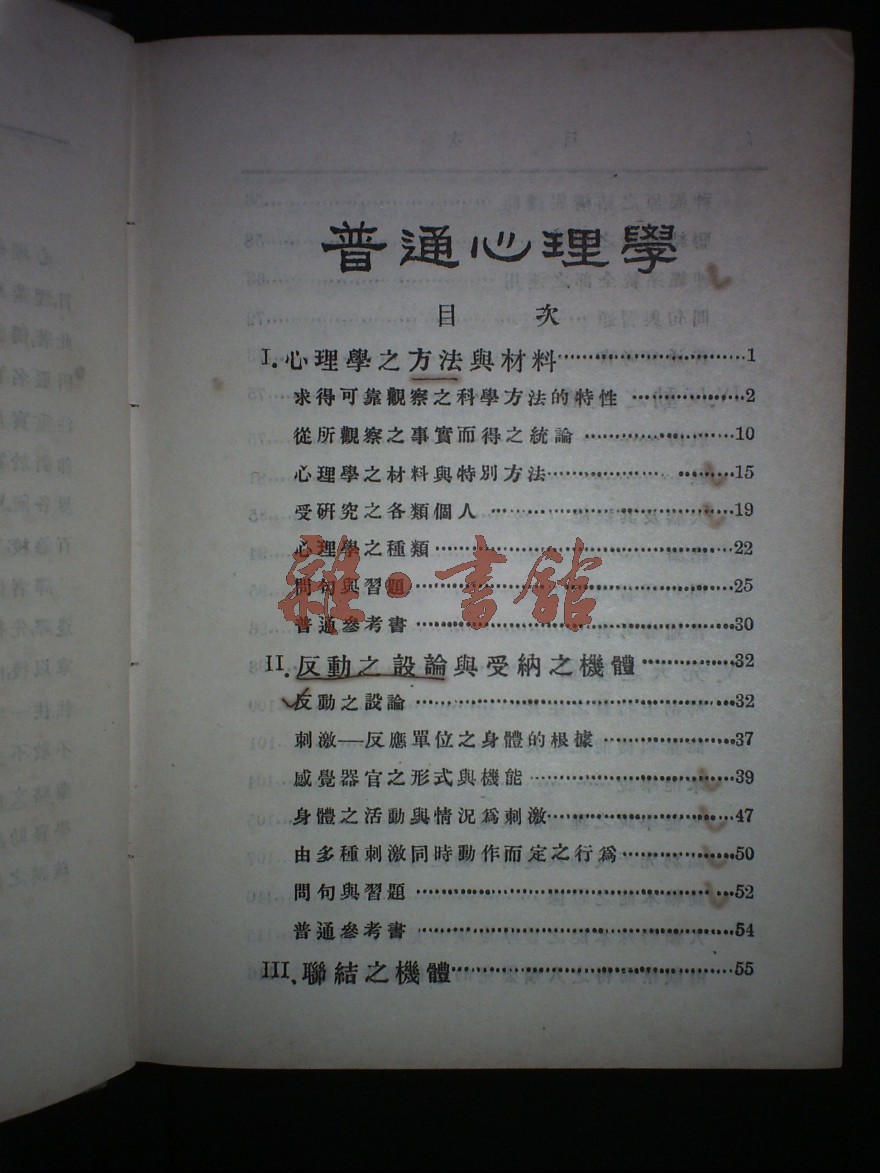 普通心理學
目 次
I. 心理學之方法與材料……………………1
求得可靠觀察之科學方法的特性……………………2
從所觀察之事實而得之統論……………………10
心理學之材料與特別方法……………………15
受研究之各類個人……………………19
心理學之種類……………………22
問句與習題……………………25
普通參考書……………………30
雜·書館
II. 反動之設論與受納之機體……………………32
反動之設論……………………32
刺激—反應單位之身體的根據……………………37
感覺器官之形式與機能……………………39
身體之活動與情況爲刺激……………………47
由多種刺激同時動作而定之行爲……………………50
問句與習題……………………52
普通參考書……………………54
III. 聯結之機體……………………55